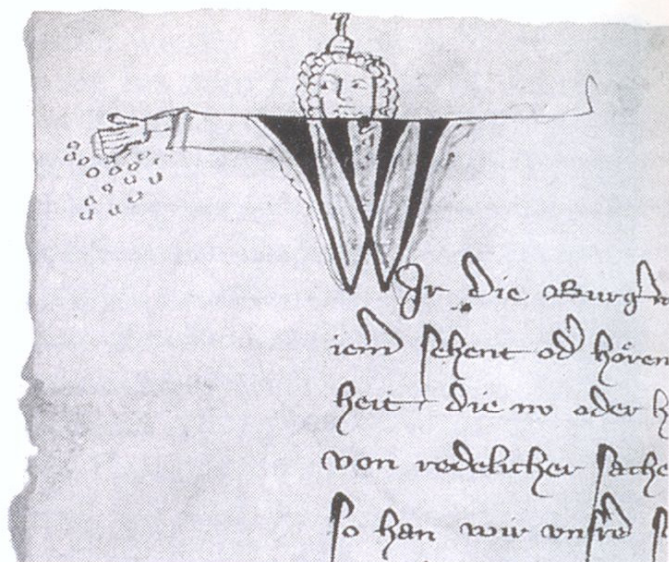 WJr die Burg
iem̄ sehent od̄ hoͤren
heit die nv oder h
von redelicher sache
so han wir vnsre s